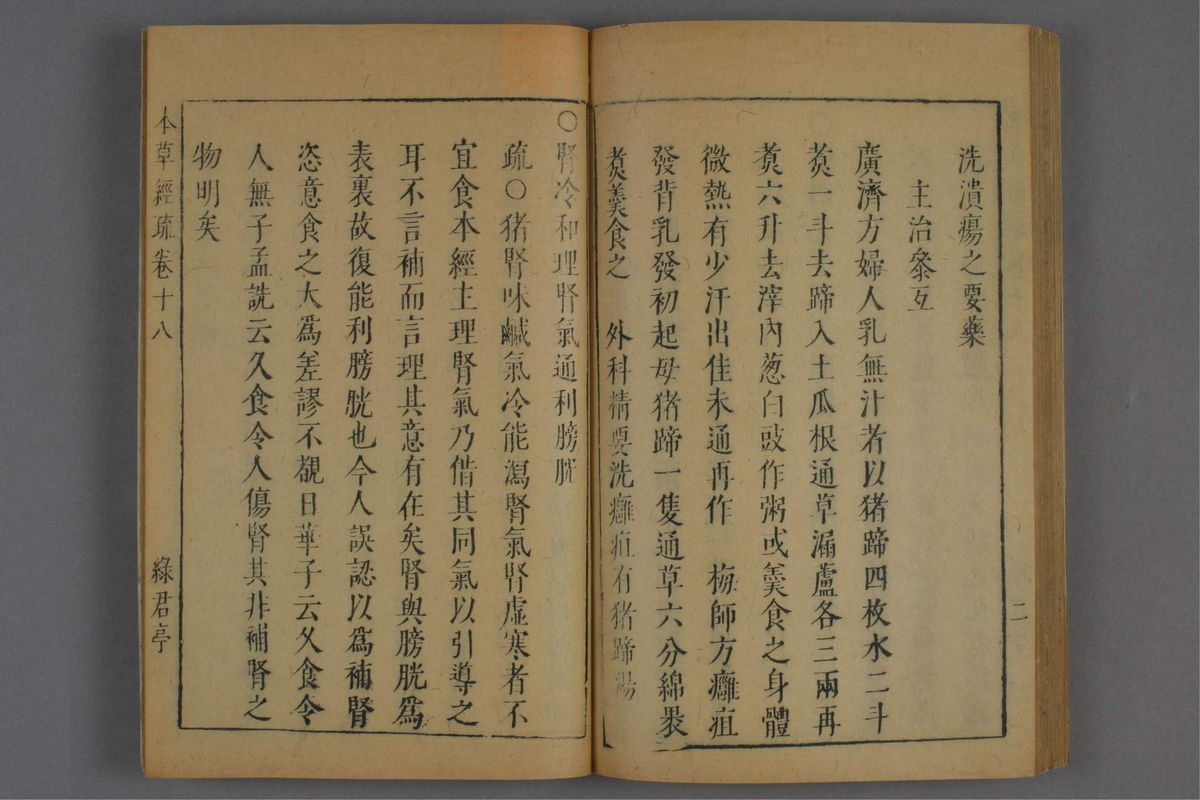 洗潰瘍之要藥
主治參互
廣濟方婦人乳無汁者以猪蹄四枚水二斗
煑一斗去蹄入土瓜根通草漏蘆各三兩再
煑六升去滓內葱白豉作粥或羹食之身體
微熱有少汗出佳未通再作　梅師方癰疽
發背乳發初起母猪蹄一隻通草六分綿裹
煑羹食之　外科精要洗癰疽有猪蹄湯
二
○腎冷和理腎氣通利膀胱
疏○猪腎味鹹氣冷能瀉腎氣腎虛寒者不
宜食本經主理腎氣乃借其同氣以引導之
耳不言補而言理其意有在矣腎與膀胱爲
表裏故復能利膀胱也今人誤認以爲補腎
恣意食之大爲差謬不覩日華子云久食令
人無子孟詵云久食令人傷腎其非補腎之
物明矣
本草經疏卷十八
綠君亭